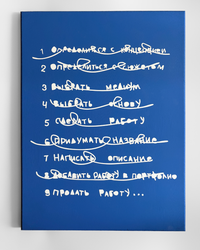 1 Определиться с концепцией
2 Определиться с сюжетом
3 Выбрать медиум
4 Выбрать основу
5 Сделать работу
6 Придумать название
7 Написать описание
8 Добавить работу в портфолио
9 Продать работу...